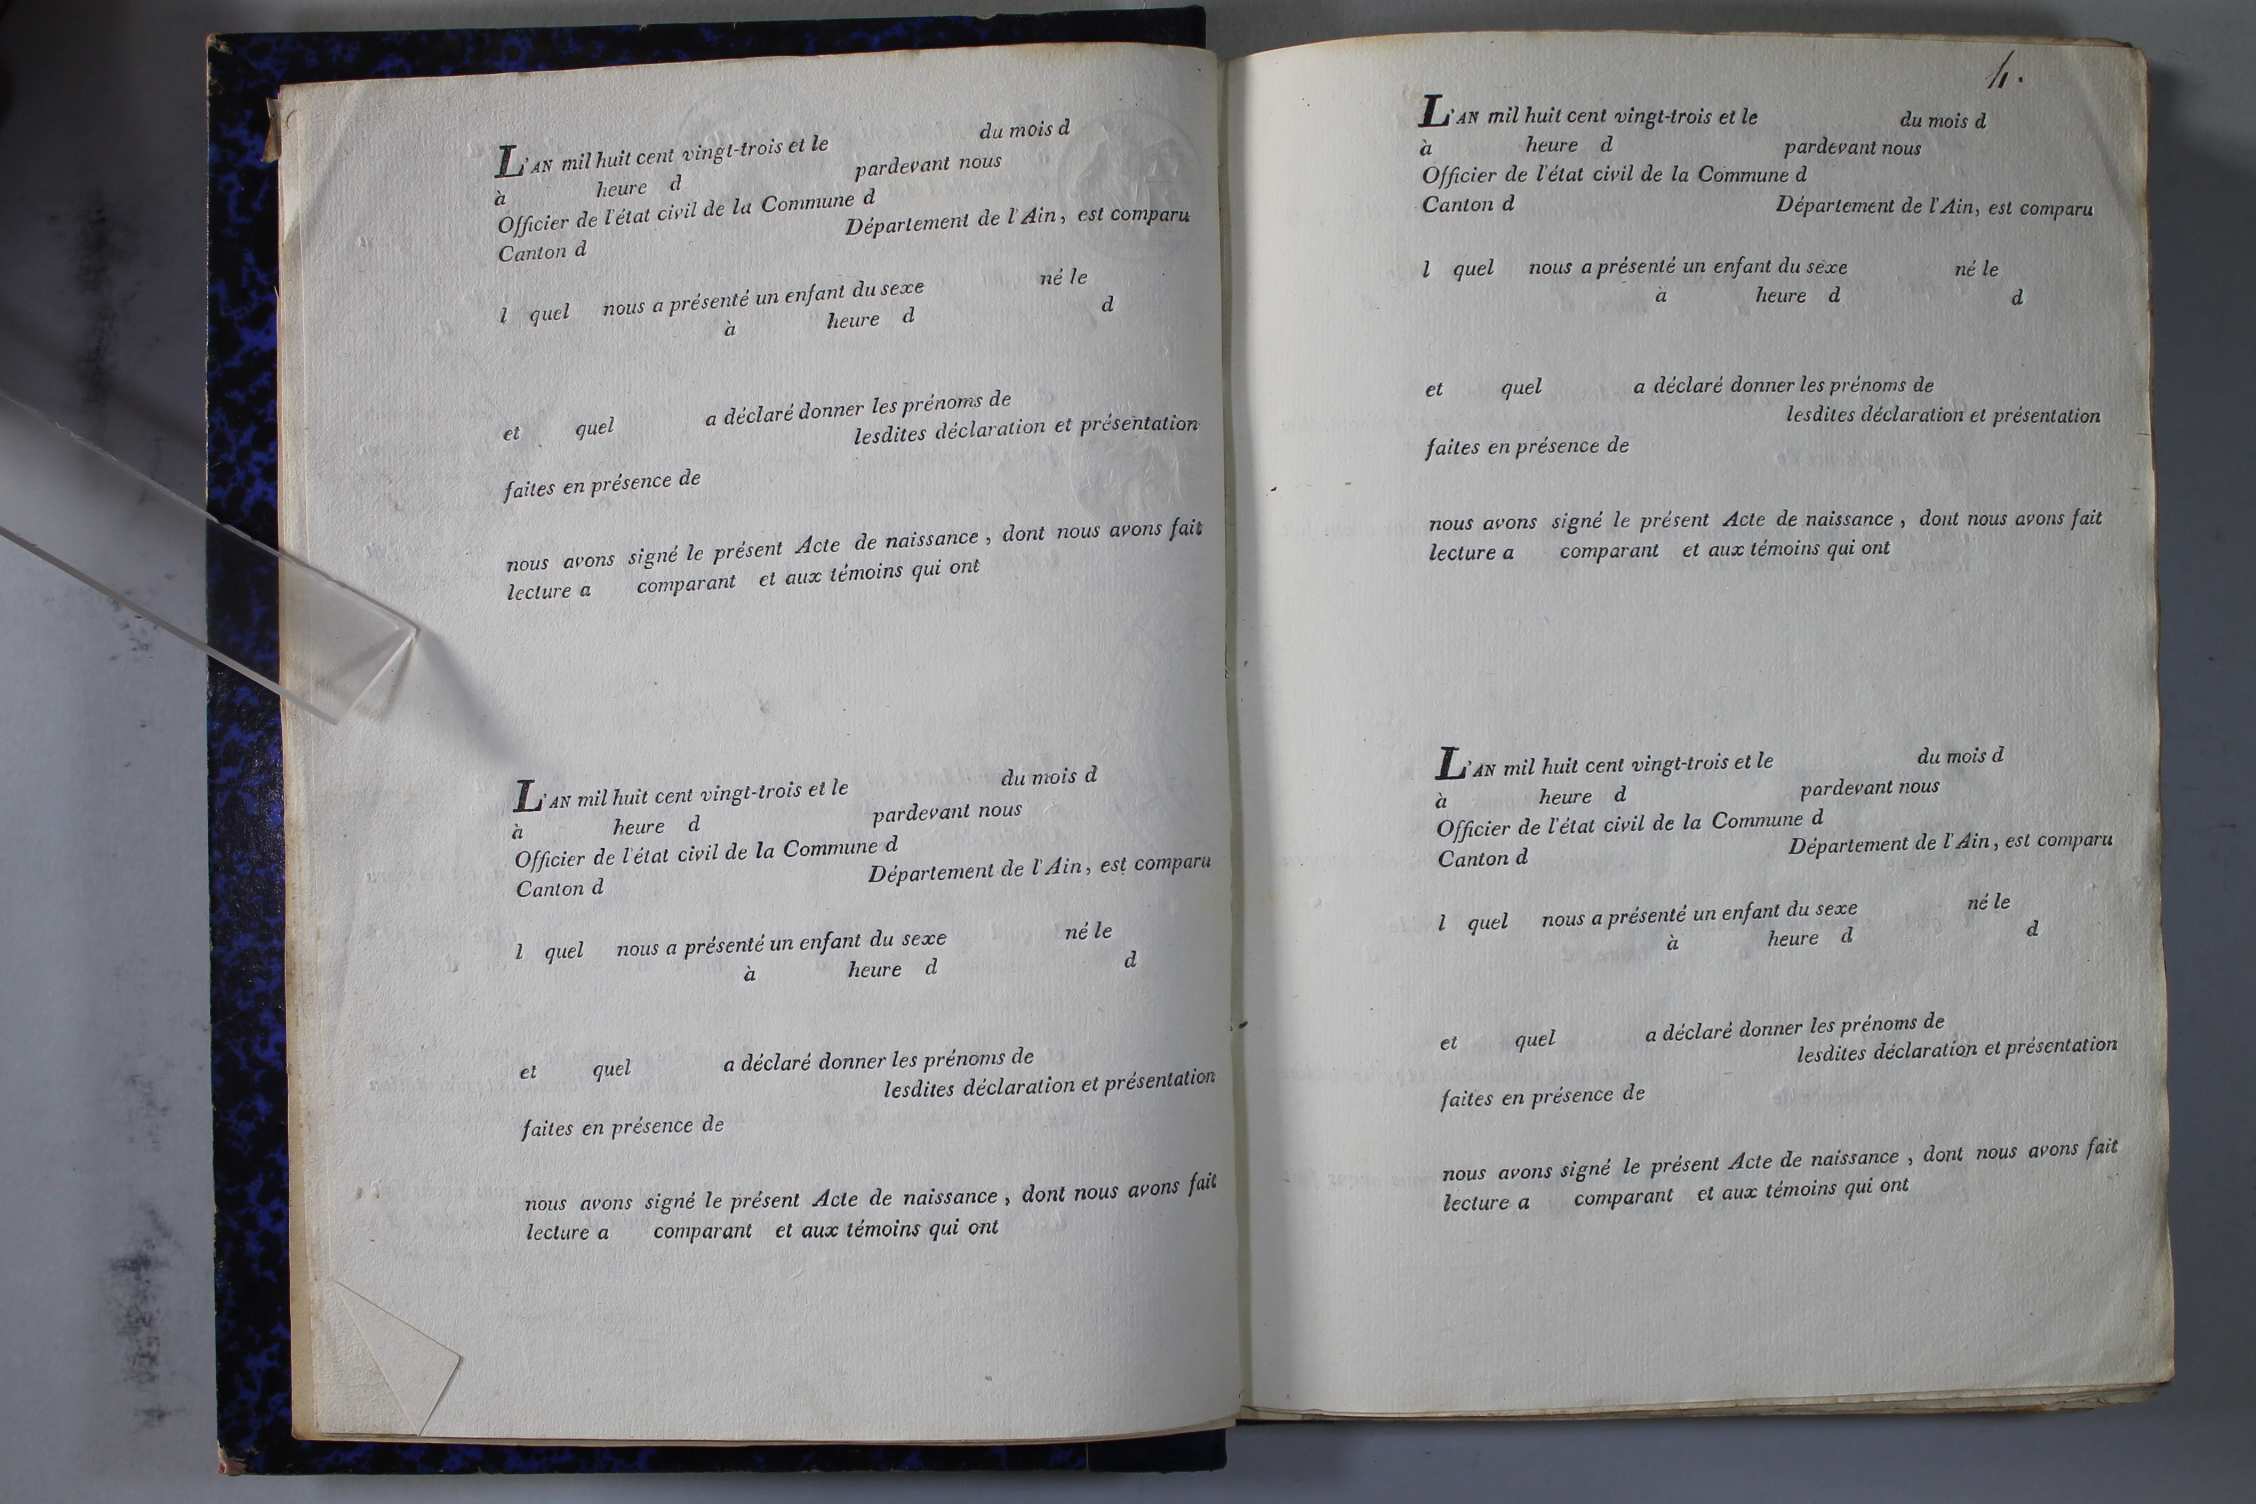 L'AN mil huit cent vingt-trois et le du mois d
à heure d pardevant nous
Officier de l'état civil de la Commune d
Canton d Département de l'Ain, est comparu
l quel nous a présenté un enfant du sexe né le
à heure d d
et quel a déclaré donner les prénoms de
lesdites déclaration et présentation
faites en présence de
nous avons signé le présent Acte de naissance, dont nous avons fait
lecture a comparant et aux témoins qui ont
L'AN mil huit cent vingt-trois et le du mois d
à heure d pardevant nous
Officier de l'état civil de la Commune d
Canton d Département de l'Ain, est comparu
l quel nous a présenté un enfant du sexe né le
à heure d d
et quel a déclaré donner les prénoms de
lesdites déclaration et présentation
faites en présence de
nous avons signé le présent Acte de naissance, dont nous avons fait
lecture a comparant et aux témoins qui ont
4.
L'AN mil huit cent vingt-trois et le du mois d
à heure d pardevant nous
Officier de l'état civil de la Commune d
Canton d Département de l'Ain, est comparu
l quel nous a présenté un enfant du sexe né le
à heure d d
et quel a déclaré donner les prénoms de
lesdites déclaration et présentation
faites en présence de
nous avons signé le présent Acte de naissance, dont nous avons fait
lecture a comparant et aux témoins qui ont
L'AN mil huit cent vingt-trois et le du mois d
à heure d pardevant nous
Officier de l'état civil de la Commune d
Canton d Département de l'Ain, est comparu
l quel nous a présenté un enfant du sexe né le
à heure d d
et quel a déclaré donner les prénoms de
lesdites déclaration et présentation
faites en présence de
nous avons signé le présent Acte de naissance, dont nous avons fait
lecture a comparant et aux témoins qui ont